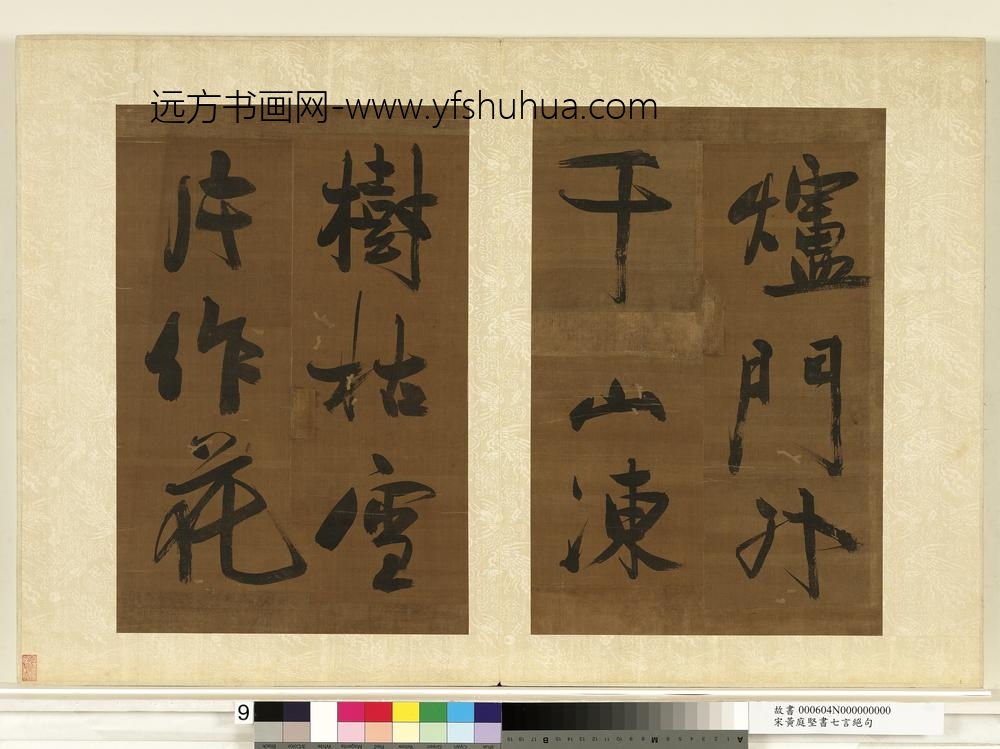 远方书画网-www.yfshuhua.com
爐門外
千山凍
樹枯雪
片作花
9
故書 000604N000000000
宋黃庭堅書七言絕句